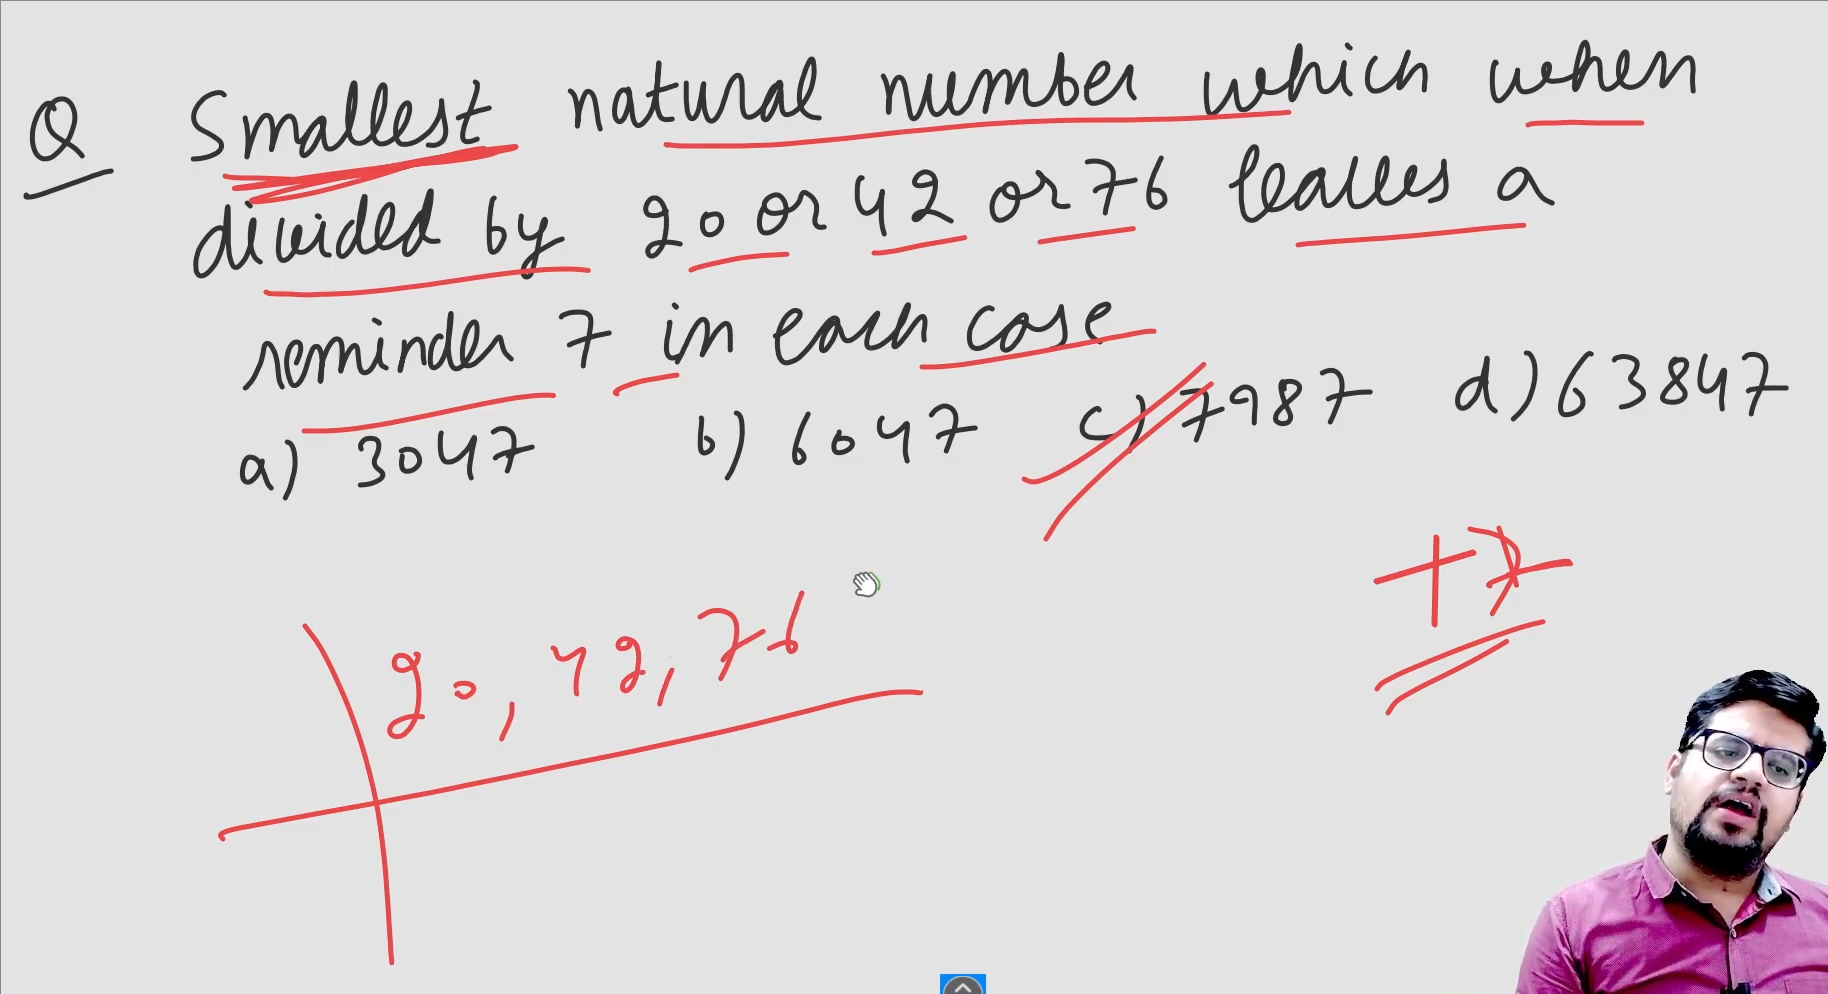 Q Smallest natural number which when
divided by 20 or 42 or 76 leaves a
reminder 7 in each case
a) 3047 b) 6047 c) 7987 d) 63847
+7
20, 42, 76